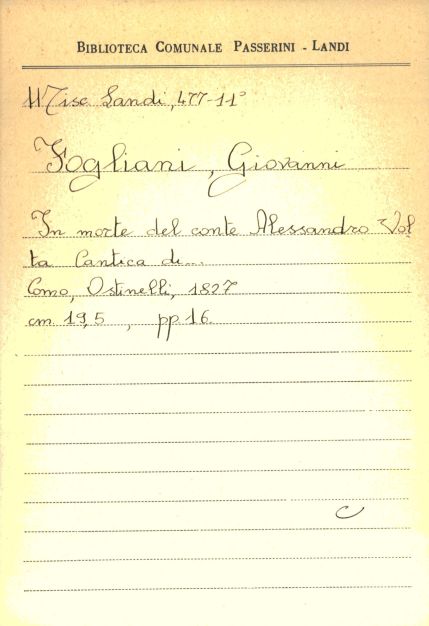 BIBLIOTECA COMUNALE PASSERINI - LANDI
Misc Landi, 477-11°
Fogliani, Giovanni
In morte del conte Alessandro Vol
ta Cantica di...
Como, Ostinelli, 1827
cm 19,5 , pp 16
C